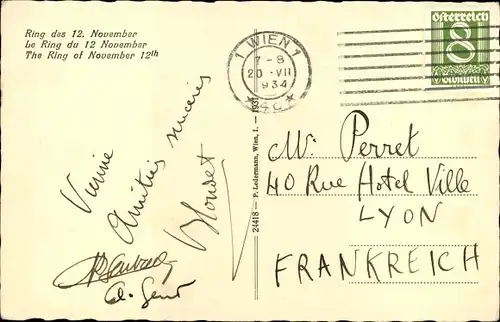 Ring des 12. November
Le Ring du 12 November
The Ring of November 12th
1 WIEN 1
7-8
20 ·VII
934
Österreich
8
GROSCHEN
Vienne
Amitiés sincères
24418 — P. Ledermann, Wien, I. — 1931
Mr Perret
40 Rue Hotel Ville
LYON
FRANKREICH